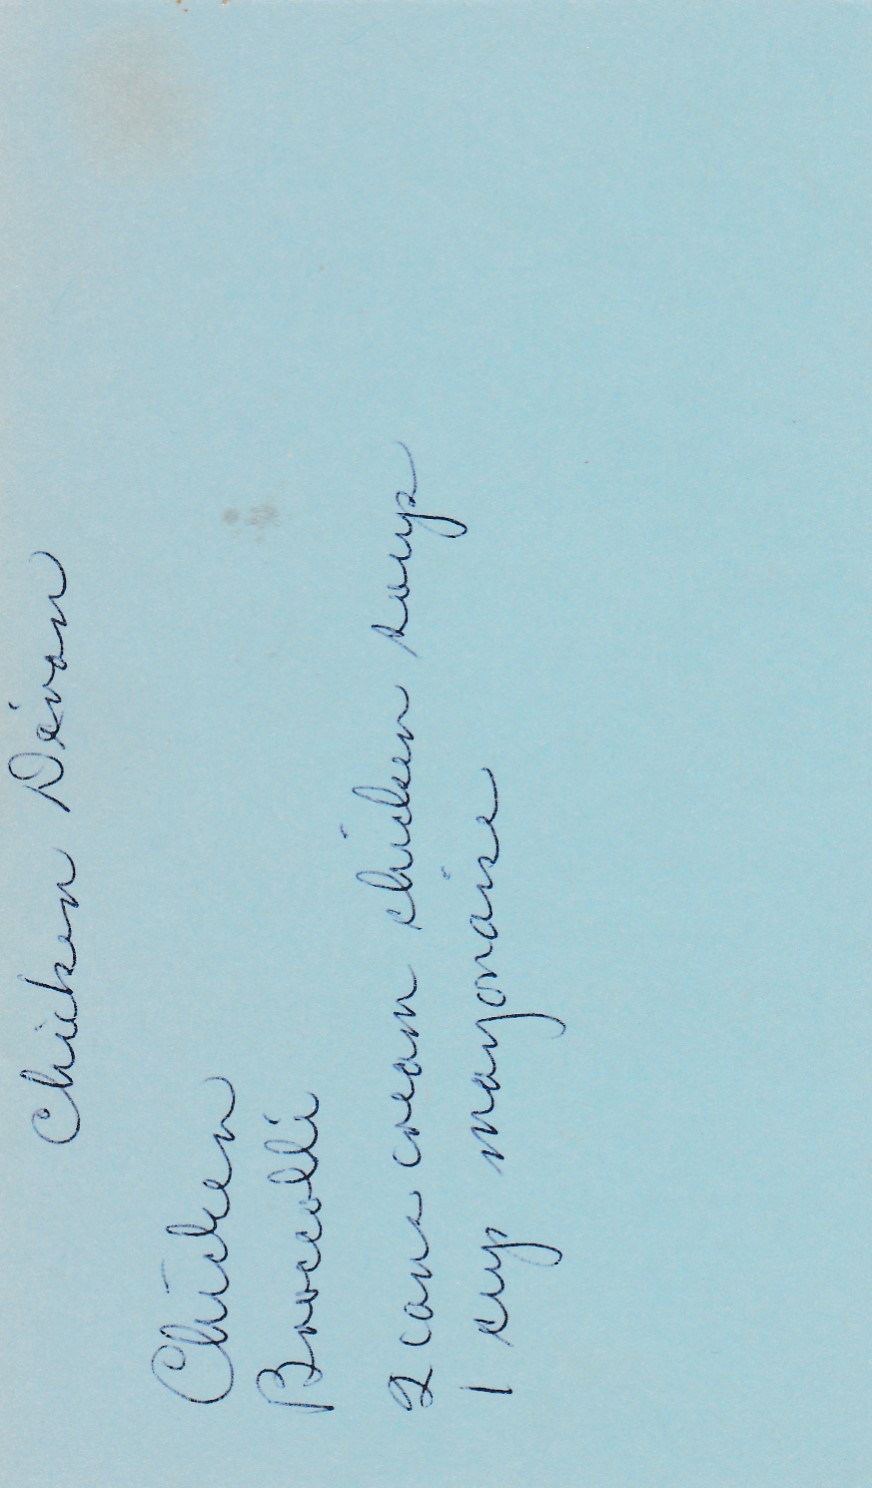 Chicken Divan
Chicken
Broccolli
2 cans cream chicken soup
1 cup mayonaise